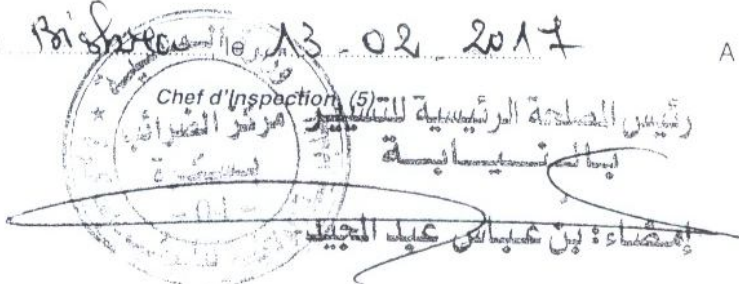 Biskra le 13-02 2017 A
Chef d'Inspection (5)
رئيس المصلحة الرئيسية للتسيير
مركز الضرائب
بالنسيابة
بسكرة
إمضاء: بن عباس عبد المجيد